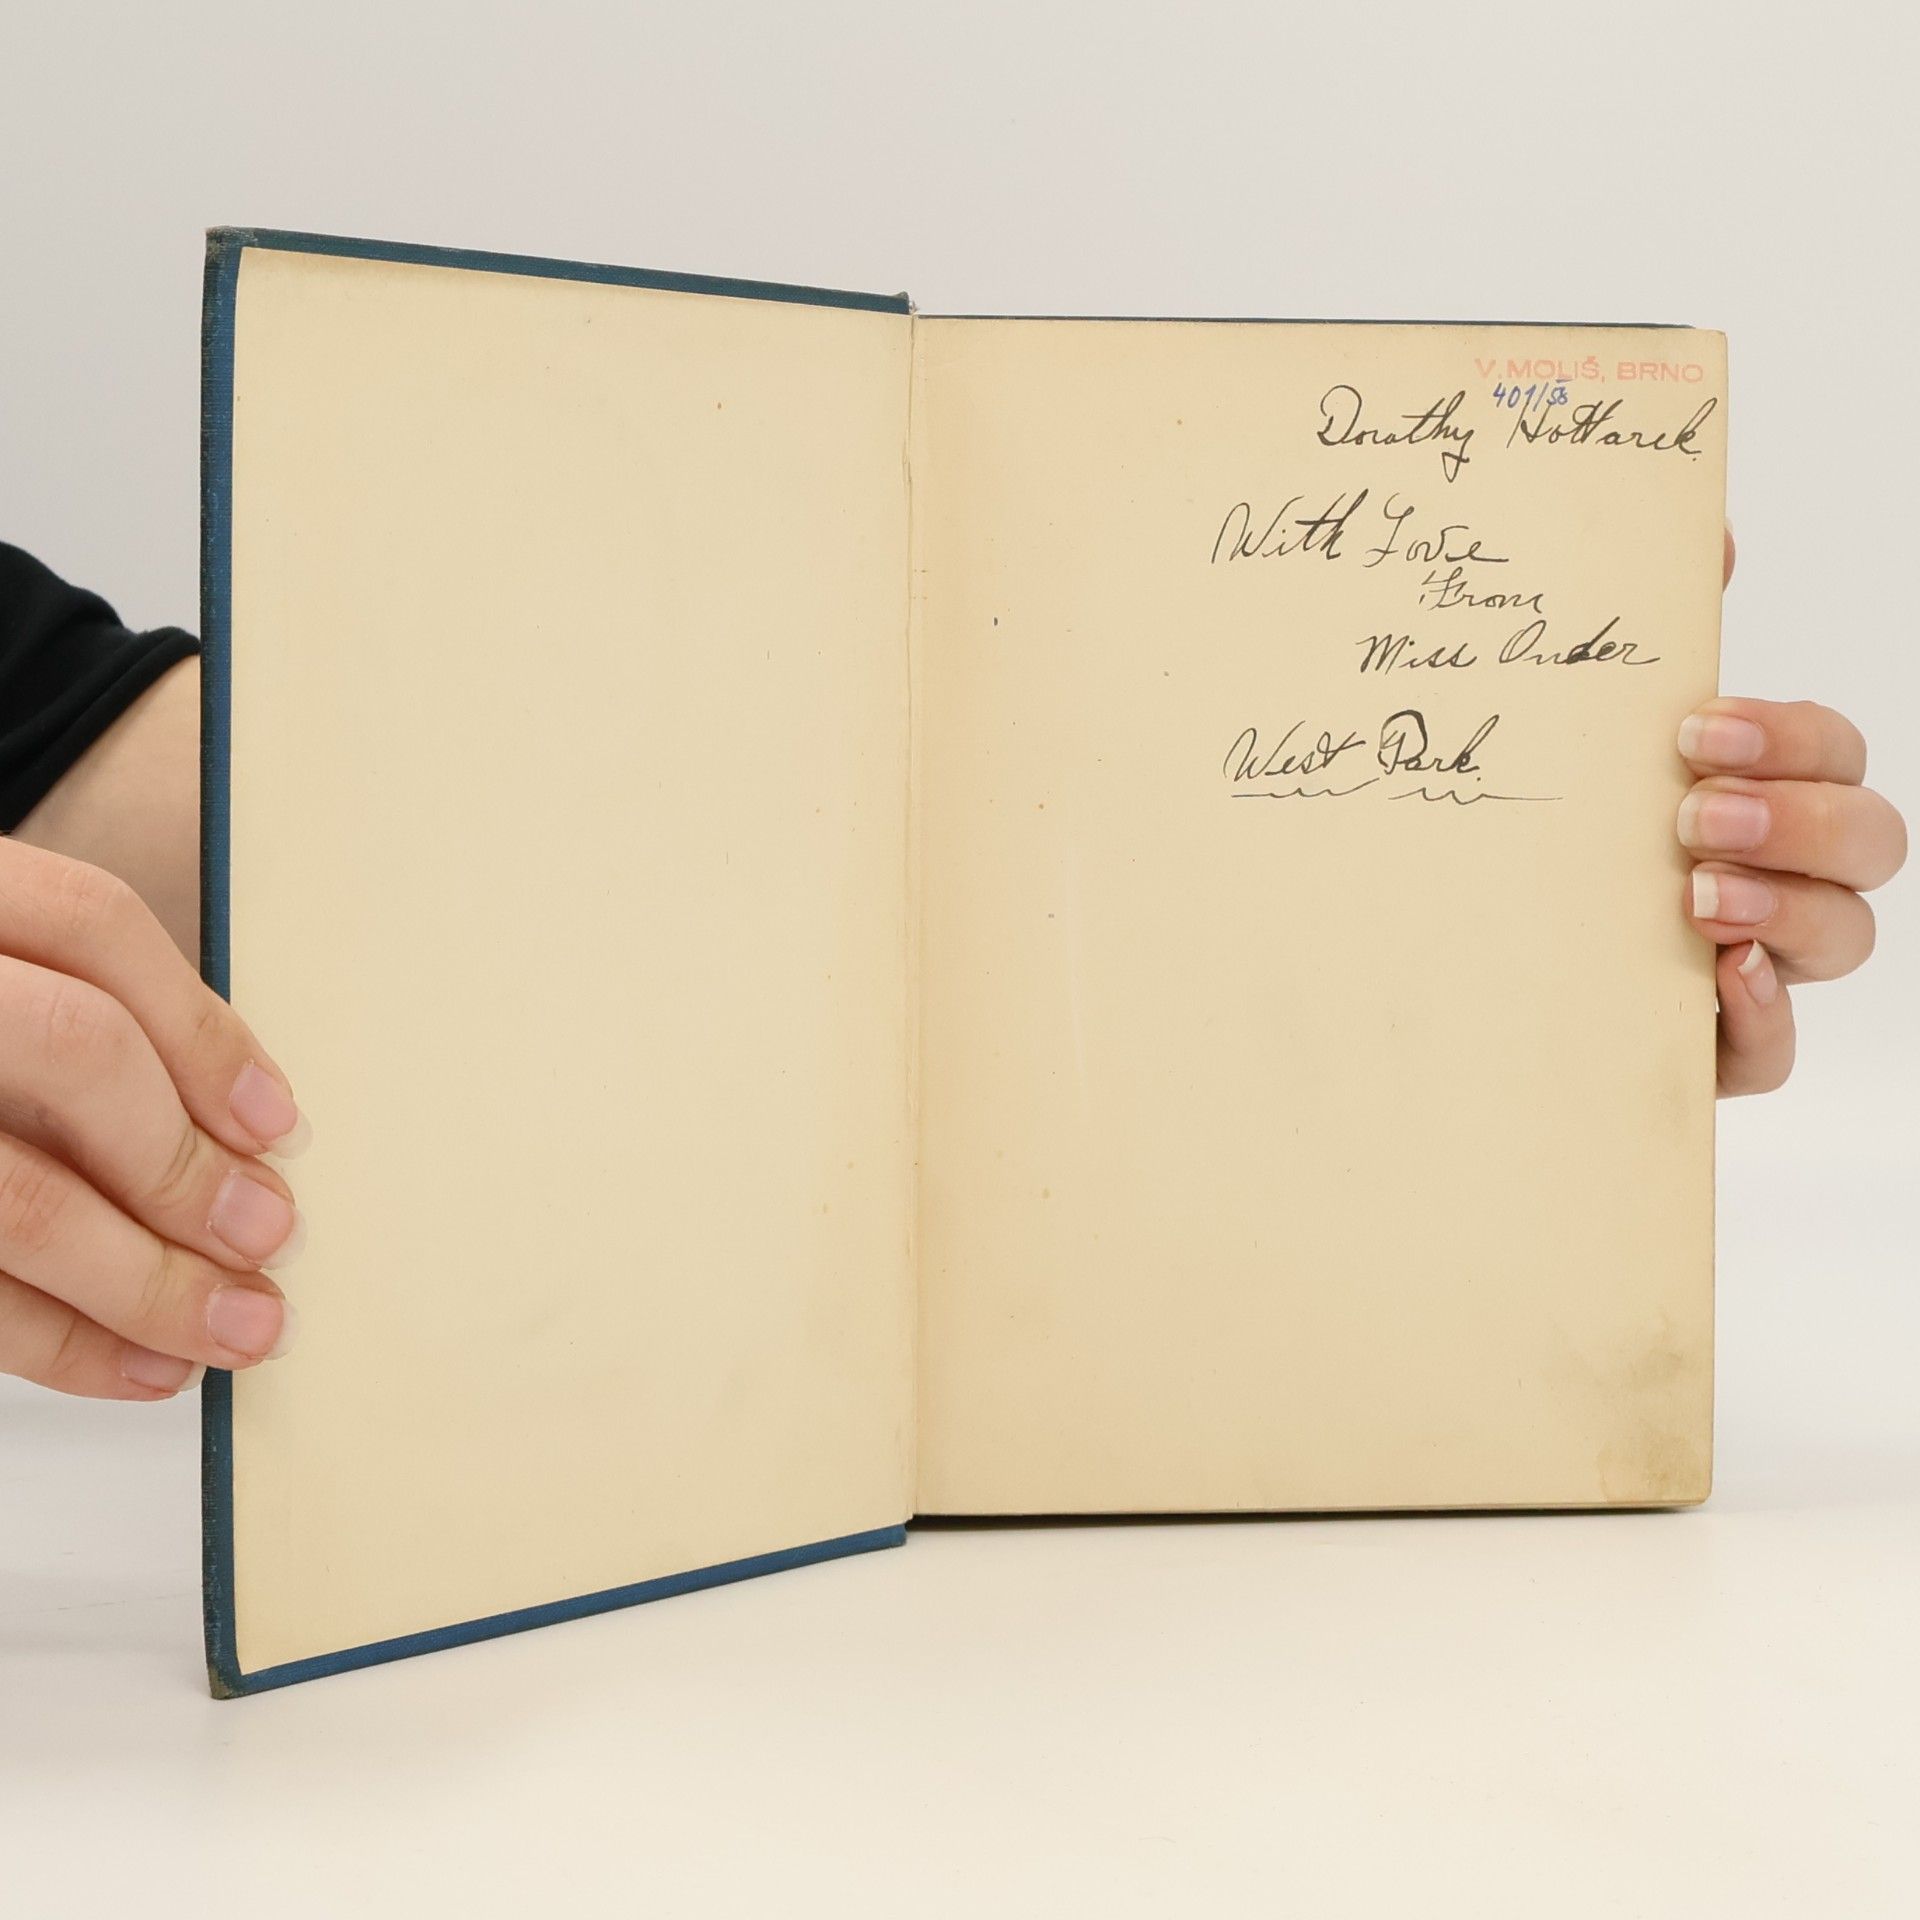 V. MOLIŠ, BRNO
401/58
Dorothy Hottarek.
With Love
From
Miss Onder
West Park.